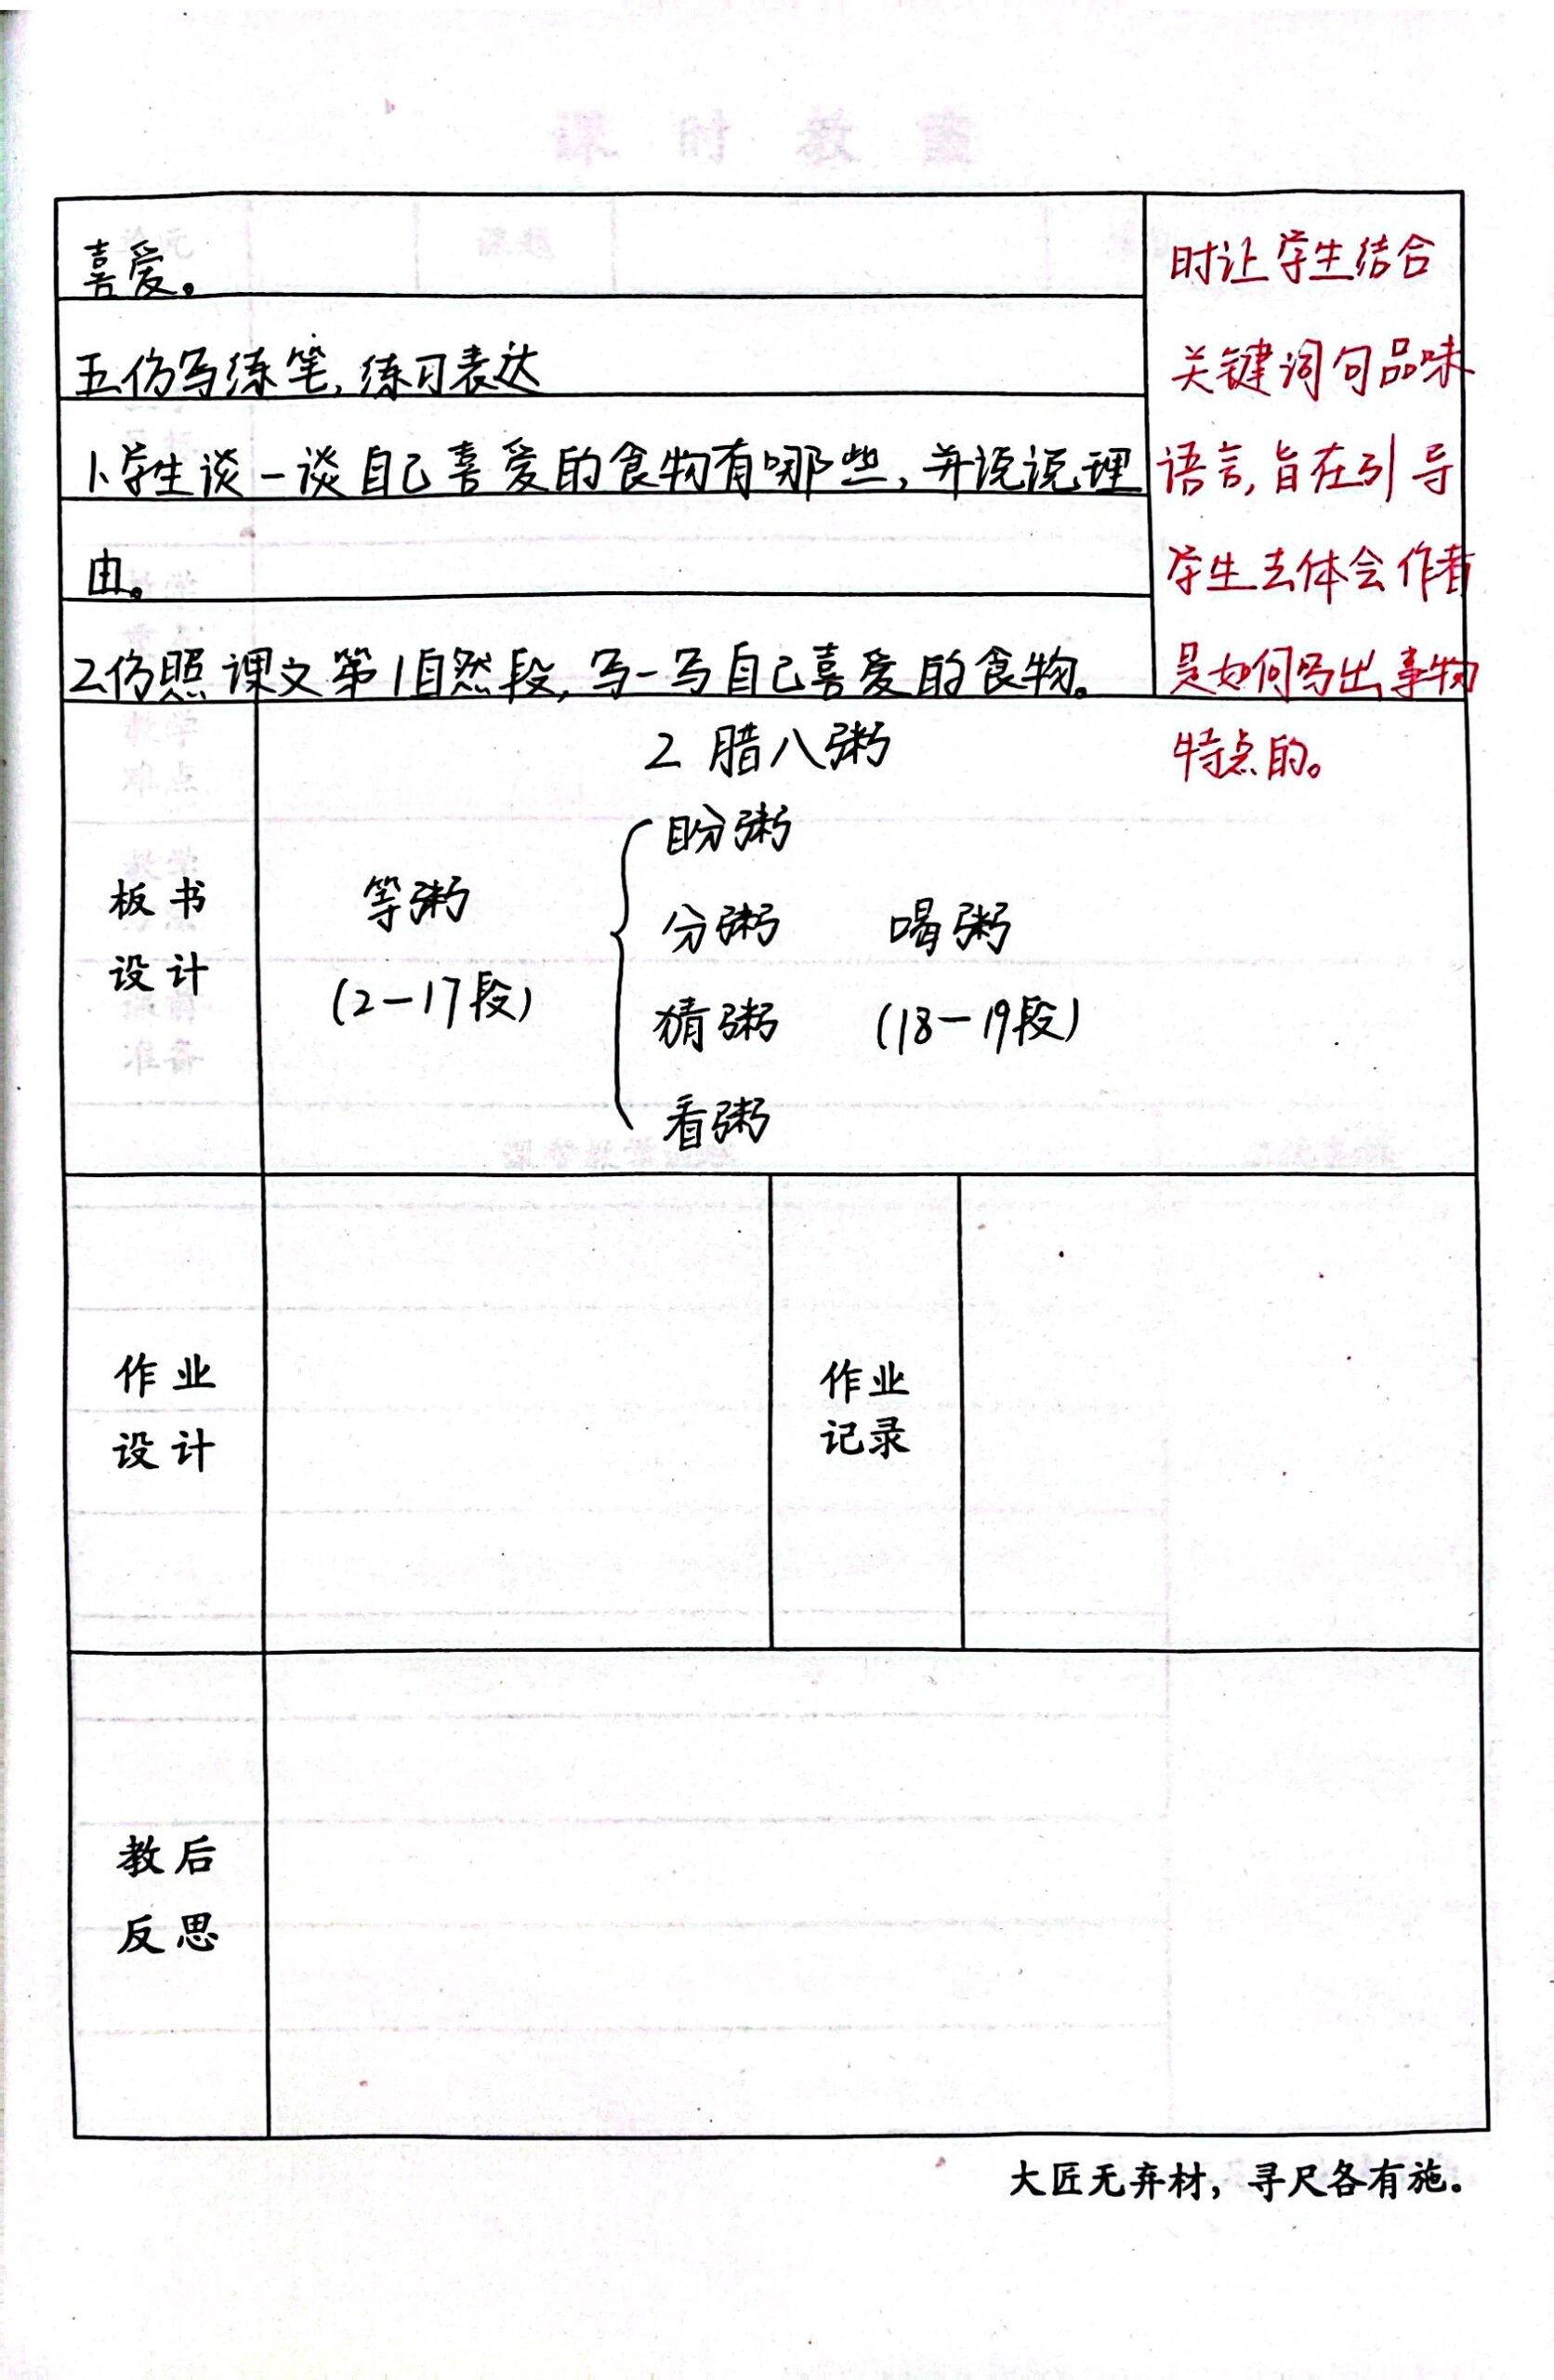 喜爱。
五、仿写练笔,练习表达
1、学生谈一谈自己喜爱的食物有哪些,并说说理
由。
2、仿照课文第1自然段,写一写自己喜爱的食物。
时让学生结合
关键词句品味
语言,旨在引导
学生去体会作者
是如何写出事物
特点的。
板书
设计
2 腊八粥
等粥
(2—17段)
盼粥
分粥
猜粥
看粥
喝粥
(18—19段)
作业
设计
作业
记录
教后
反思
大匠无弃材，寻尺各有施。